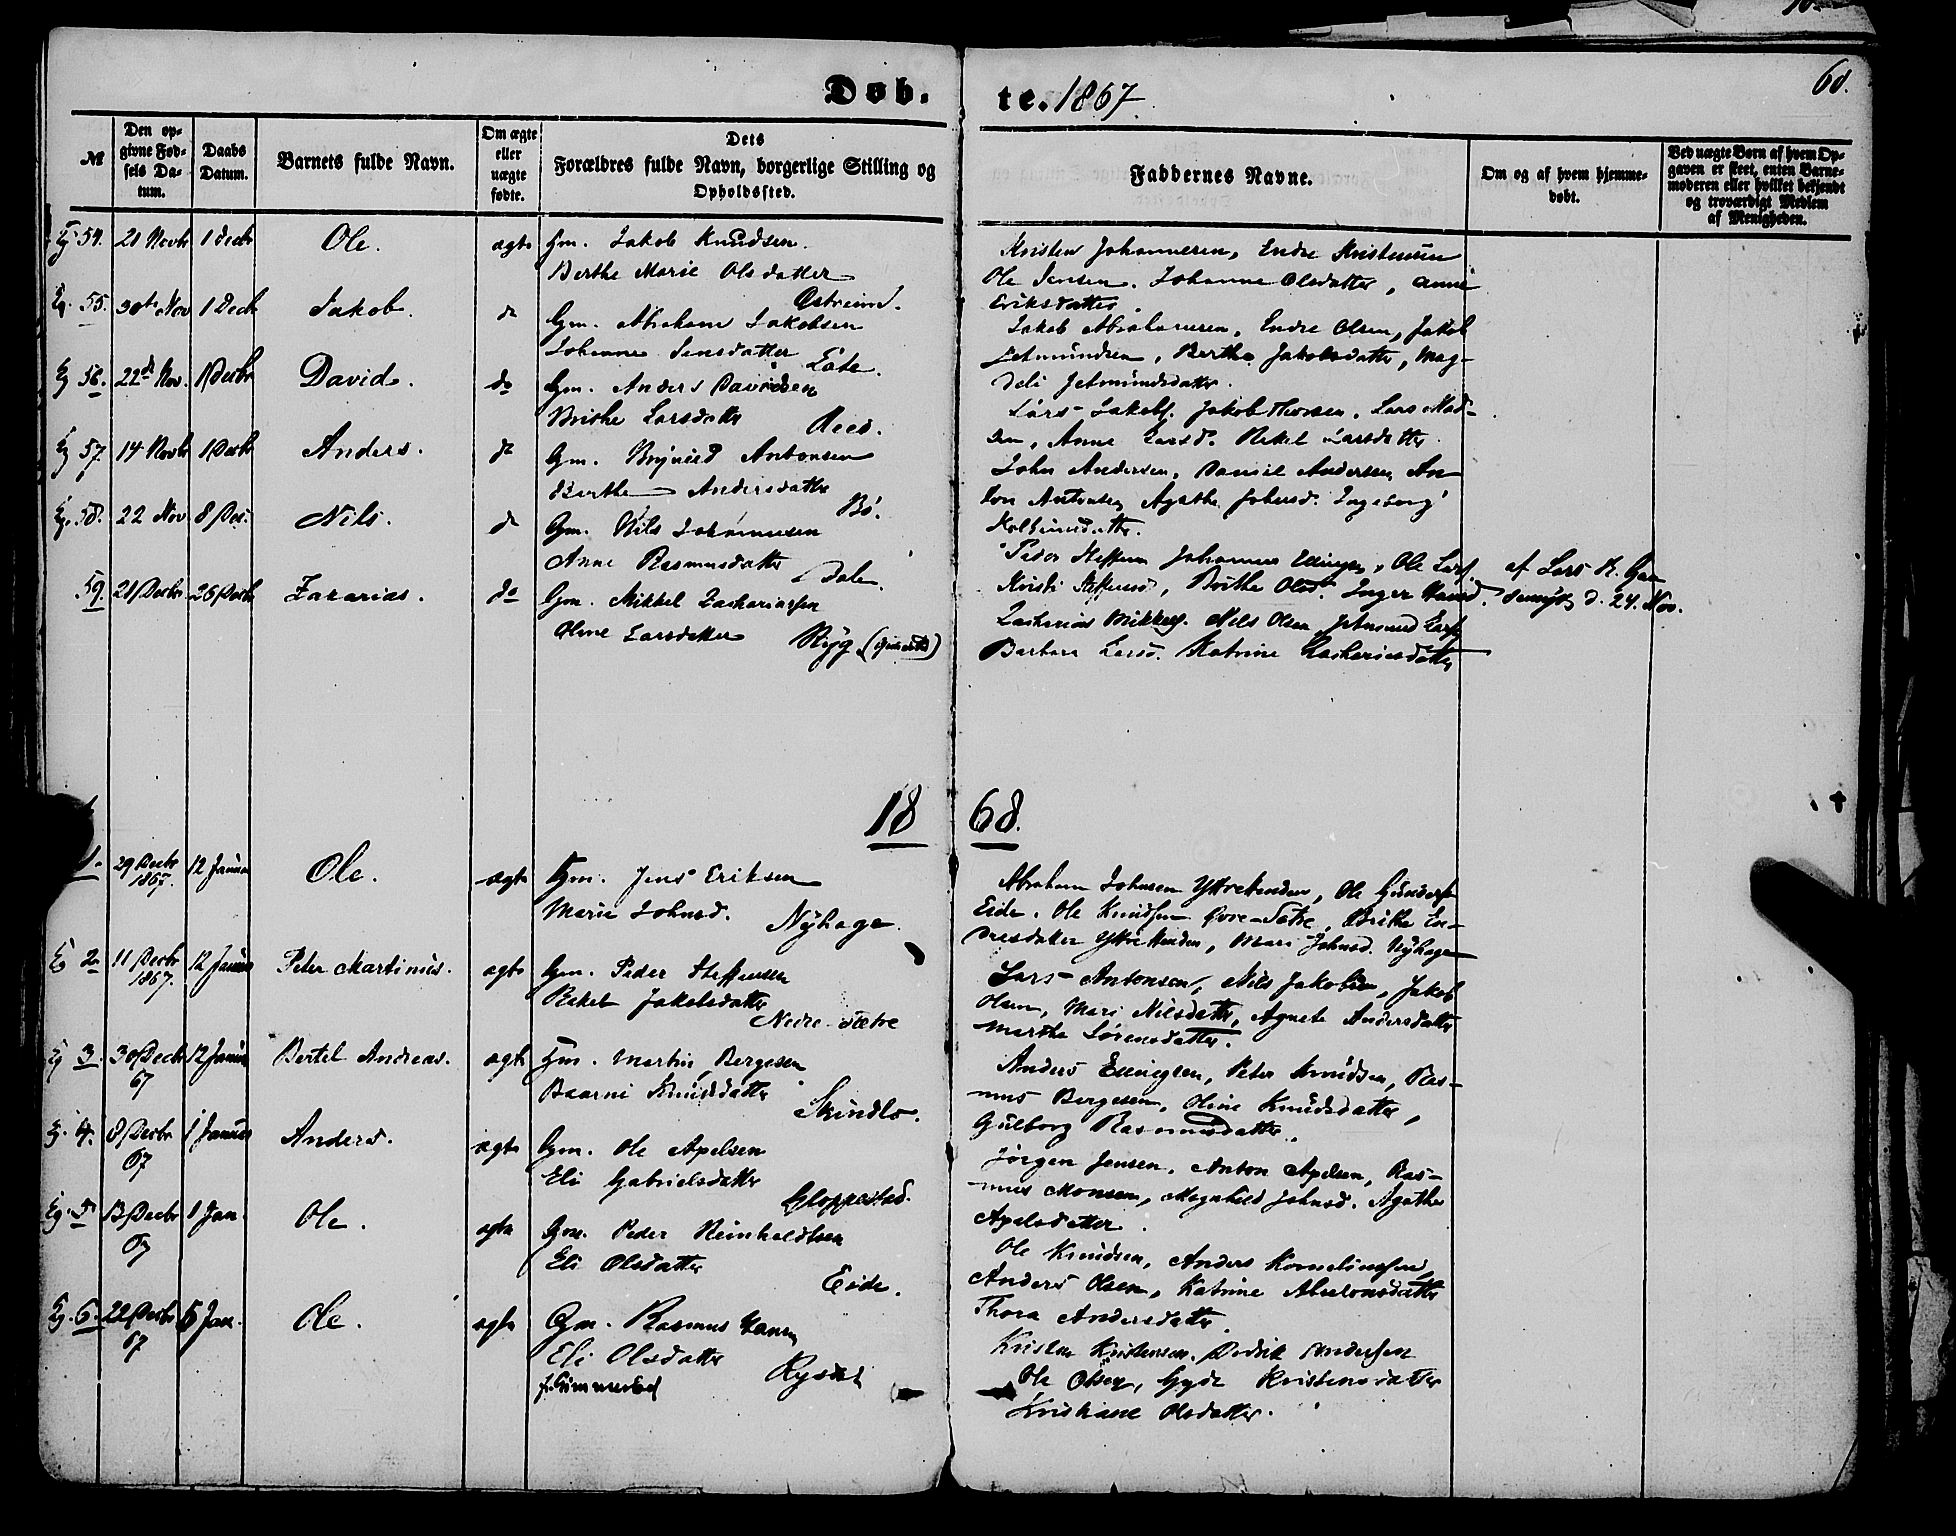 Døb. te. 1867. 68.
№
Den opgivne Fødsels Datum.
Daabs Datum.
Barnets fulde Navn.
Om ægte eller uægte fødte.
Dets
Forældres fulde Navn, borgerlige Stilling og
Opholdssted.
Faddernes Navne.
Om og af hvem hjemmedøbt.
Ved uægte Børn af hvem Opgaven er skeet, enten Barnemoderen eller hvilket bekjendt og troværdigt Medlem af Menigheden.
Eg. 54. 21 Novbr 1 Decbr Ole. ægte Gm. Jakob Knudsen.
Berthe Marie Olsdatter
Østreim.
Kristen Johannesen, Endre Kristensen
Ole Jensen. Johanne Olsdatter, Anne
Eriksdatter.
Eg. 55. 30te Nov 1 Decb Jakob. do Gm. Abraham Jakobsen
Johanne Jensdatter
Jakob Abrahamsen, Endre Olsen, Jakob
Jetmundsen, Berthe Jakobsdatter, Mag-
deli Jetmundsdatter.
Eg 56. 22de Nov. 1 Decbr David. do Gm. Anders Davidsen
Brithe Larsdatter Reed.
Lars Jakobs. Jakob Thoresen. Lars Mad-
sen, Anne Larsd. Rakel Larsdatter
Eg 57. 14 Novbr 1 Decbr Anders. do Gm. Brynild Antonsen
Berthe Andersdatter
Bø.
John Andersen, Daniel Andersen An-
ton Antonsen Agathe Johnsd. Ingeborg
Eg. 58. 22 Nov 8 Dec. Nils. do Gm. Nils Johannesen
Anne Rasmusdatter Dale.
Peder Steffensen Johannes Ellingsen, Ole Larss.
Kristi Steffensd, Brithe Olsd. Inger Hansd.
af Lars R.
d. 24. Nov.
59. 21 Decbr 26 Decbr Zakarias. do Gm. Mikkel Zachariassen
Oline Larsdatter Ryg (Gimestad)
Zacharias Mikkels. Nils Olsen Jetmund Larss
Barbara Larsd. Katrine Zachariasdatter
18 68.
1. 29 Decbr 1867. 12 Januar Ole. ægte Gm. Jens Eriksen
Marie Johnsd. Nyhage.
Abraham Johnsen Ytrehenden, Ole Gunders
Eide. Ole Knudsen Øvre-Sætre, Brithe En-
dresdatter Ytrehenden, Mari Johnsd. Nyhage
Eg 2. 11 Decbr 1867. 12 Januar Peter Martinus. ægte Gm. Peder Steffensen
Rakel Jakobsdatter
Nedre-Sætre
Lars Antonsen, Nils Jakobsen, Jakob
Olsen, Mari Nilsdatter, Agnete Andersdatter
Marthe Sørensdatter.
Eg 3. 30 Decb 67 12 Januar Bertel Andreas. ægte Gm. Martin Bergesen
Knudsdatter
Skindlo.
Anders Ellingsen, Peter Knudsen, Ras-
mus Bergesen, Oline Knudsdatter,
Gulborg Rasmusdatter.
Eg. 4. 8 Decbr 67 1 Januar Anders. ægte Gm. Ole Apelsen
Eli Gabrielsdatter
Gloppestad.
Jørgen Jensen, Anton Apelsen, Ras-
mus Monsen, Magnhild Johnsd. Agathe
Apelsdatter.
Eg. 5 13 Decbr 67 1 Jan. Ole. ægte Gm. Peder Reinholdtsen
Eli Olsdatter
Eide.
Ole Knudsen, Anders Korneliussen,
Anders Olsen, Katrine Absalonsdatter
Thora Andersdatter.
Eg. 6. 22 Decbr 67 6 Jan. Ole. ægte Gm. Rasmus Hansen
Eli Olsdatter
f. Gimmestad
Kristen Kristensen. Didrik Andersen
Ole Olsen, Gyde Kristensdatter
Kristiane Olsdatter.